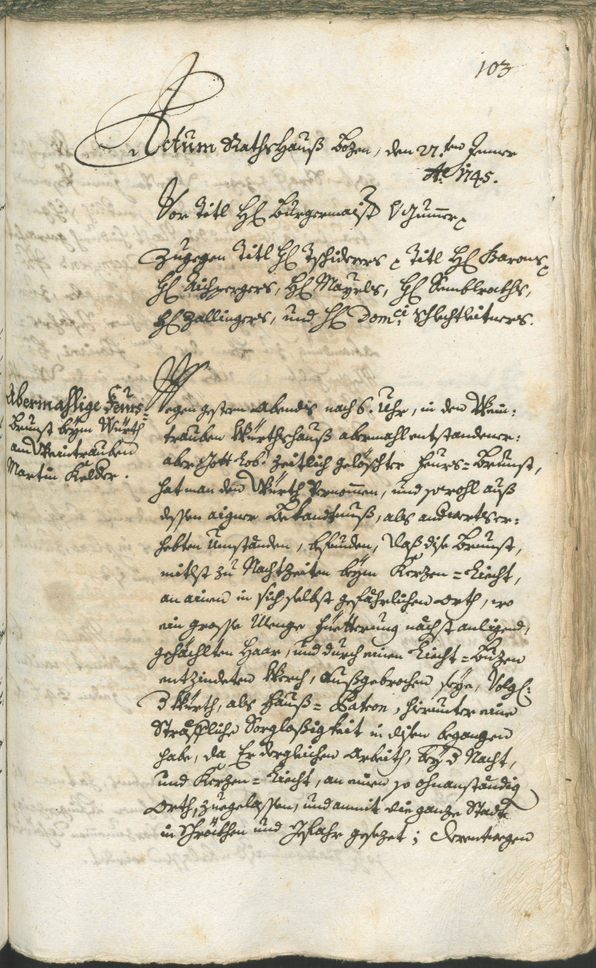 103
Actum Rathshauß Bozen, den 27.ten Jenner
Ao. 1745.
Vor Titl H: Burgermaist: v Gummer
Zugegen Titl H: Tschiderers, Titl H: Barons
H: Aichpergers, H: Mayrls, H: Kunblraths,
H: Zallingers, und H: Domci Schlechtleitners.
Abermahlige Feurs=
brunst beym Würth
am Weintrauben
Martin Kelder.
Wegen gestern Abendts nach 6. Uhr, in den Wein:
trauben Würthshauß abermahl entstandener:
aber Gott Lob: zeitlich gelöschter Feurs=Brunst,
hat man den Würth vernommen, und sowohl auß
dessen aigner Bekandtnuß, als andwerts er:
hebten Umständen, befunden, daß dise Brunst,
mitlst zu Nachtzeiten beym Kerzen=Liecht,
an ainen in sich selbst gefährlichen Orth, wo
ein grosse Menge Fuetterung nächst anligend,
gehächlten Haar, und durch einen Liecht=Buzen
entzindeten Werch, außgebrochen seye, Volgl:
d Würth, als Hauß=Patron, hirunter eine
Sträffliche Sorglosigkeit in disen begangen
habe, da Er dergleichen Arbeith, bey d Nacht,
und Kerzen=Liecht, an einen so ohnanständig
Orth, zuegelassen, und anmit die ganze Stadt
in Schröckhen und Gefahr gesezet; Derentwegen